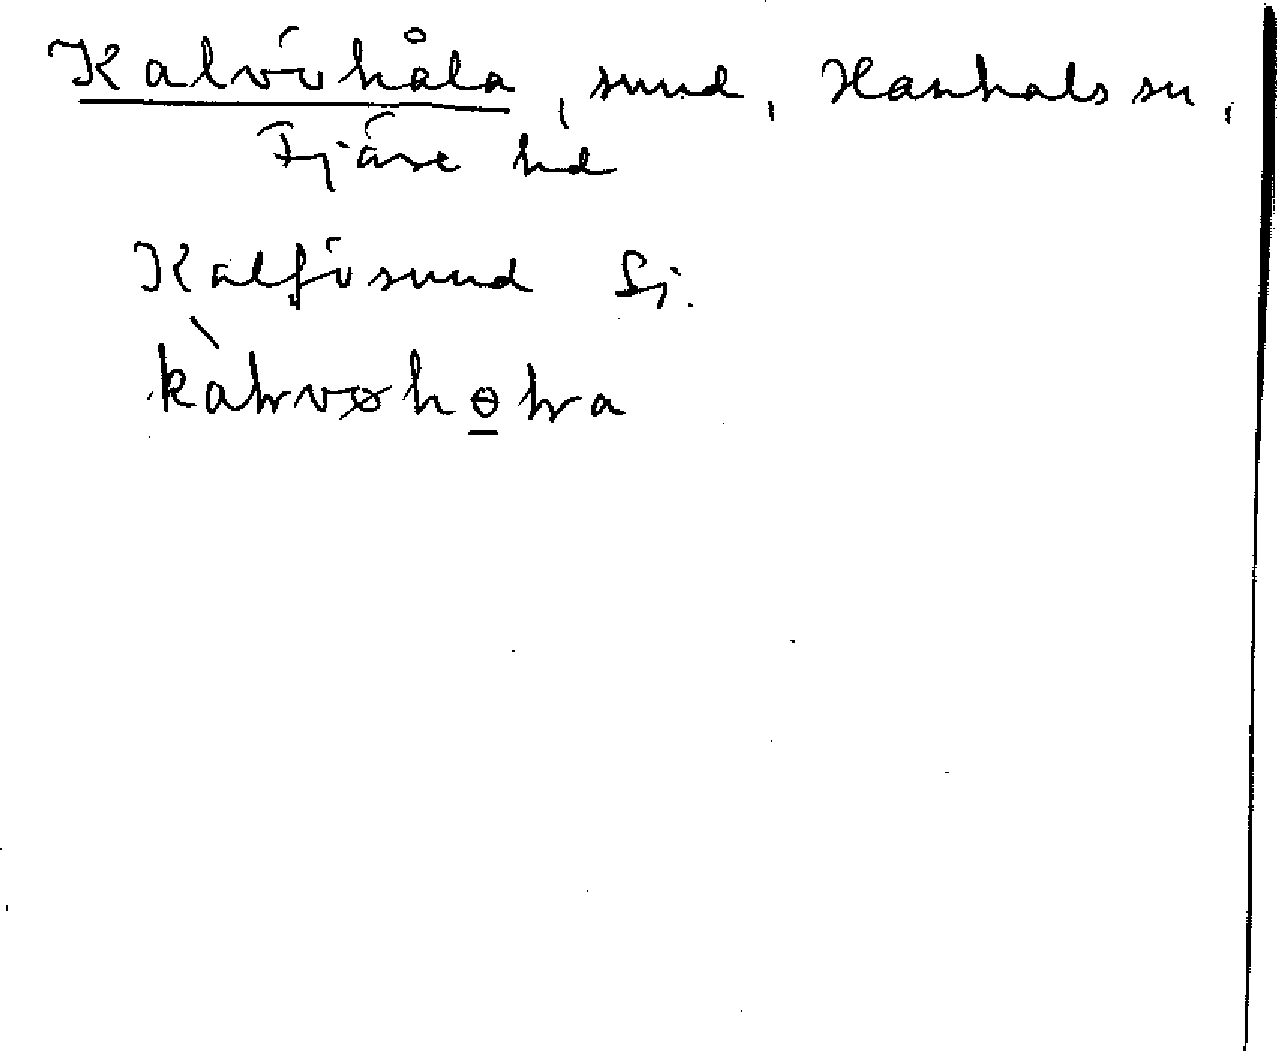 Kalvöhåla, sund, Hanhals sn,
Fjäre hd
Kalfösund Sj.
kàɫvøhɵɫa